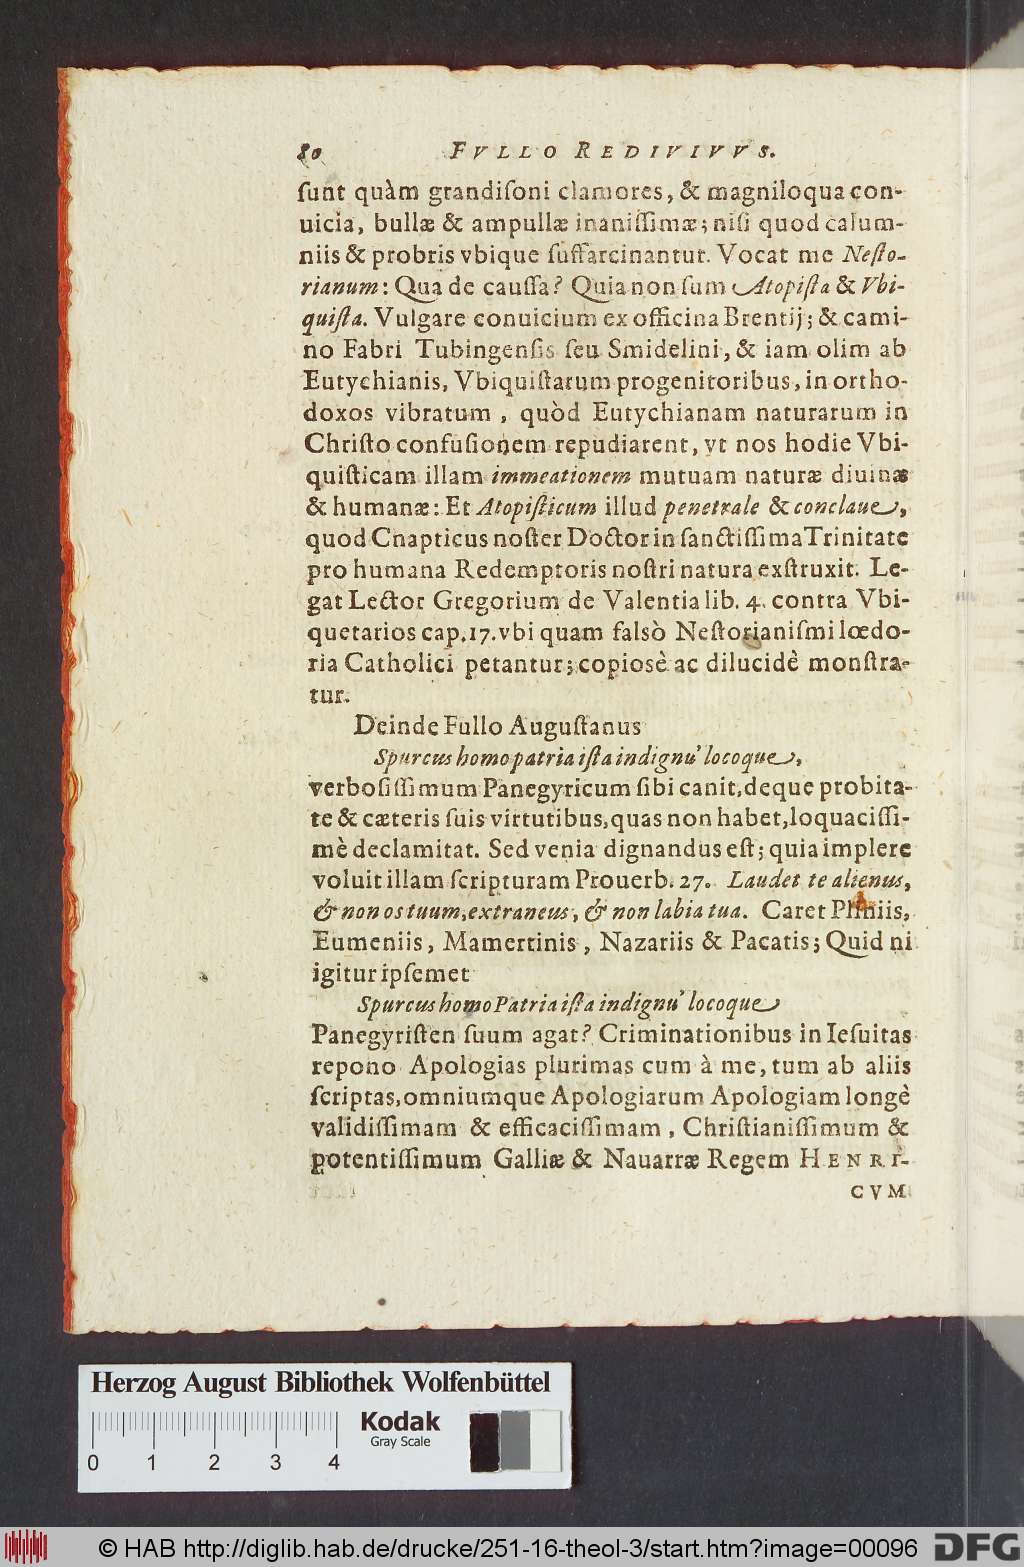 80 FVLLO REDIVIVVS.
ſunt quàm grandiſoni clamores, & magniloqua con-
uicia, bullæ & ampullæ inaniſſimæ; niſi quod calum-
niis & probris vbique ſuffarcinantur. Vocat me Neſto-
rianum: Qua de cauſſa? Quia non ſum Atopiſta & Vbi-
quiſta. Vulgare conuicium ex officina Brentij; & cami-
no Fabri Tubingenſis ſeu Smidelini, & iam olim ab
Eutychianis, Vbiquiſtarum progenitoribus, in ortho-
doxos vibratum, quòd Eutychianam naturarum in
Chriſto confuſionem repudiarent, vt nos hodie Vbi-
quiſticam illam immeationem mutuam naturæ diuinæ
& humanæ: Et Atopiſticum illud penetrale & conclaue,
quod Cnapticus noſter Doctor in ſanctiſſima Trinitate
pro humana Redemptoris noſtri natura exſtruxit. Le-
gat Lector Gregorium de Valentia lib. 4. contra Vbi-
quetarios cap. 17. vbi quam falsò Neſtorianiſmi lœdo-
ria Catholici petantur; copiosè ac dilucidè monſtra-
tur.
Deinde Fullo Auguſtanus
Spurcus homo patria iſta indignu' locoque,
verboſiſſimum Panegyricum ſibi canit, deque probita-
te & cæteris ſuis virtutibus, quas non habet, loquaciſſi-
mè declamitat. Sed venia dignandus eſt; quia implere
voluit illam ſcripturam Prouerb. 27. Laudet te alienus,
& non os tuum, extraneus, & non labia tua. Caret Pliniis,
Eumeniis, Mamertinis, Nazariis & Pacatis; Quid ni
igitur ipſemet
Spurcus homo Patria iſta indignu' locoque
Panegyriſten ſuum agat? Criminationibus in Ieſuitas
repono Apologias plurimas cum à me, tum ab aliis
ſcriptas, omniumque Apologiarum Apologiam longè
validiſſimam & efficaciſſimam, Chriſtianiſſimum &
potentiſſimum Galliæ & Nauarræ Regem HENRI-
CVM
Herzog August Bibliothek Wolfenbüttel
Kodak
Gray Scale
0 1 2 3 4
© HAB http://diglib.hab.de/drucke/251-16-theol-3/start.htm?image=00096
DFG